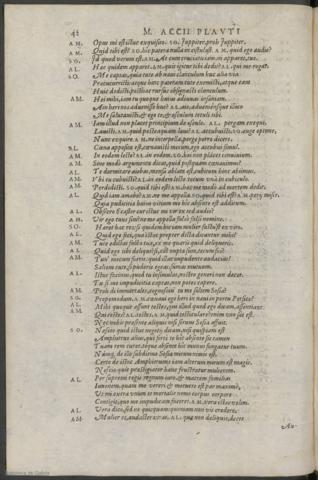 42 M. ACCII PLAVTI
AM. Opus mi est istuc exquisito. SO. Iuppiter, proh Iuppiter.
AM. Quid tibi est? SO. hic patera nulla in cistula est. AM. quid ego audio?
SO. Id quod verum est. AM. At cum cruciatu iam ni apparet, tuo.
AL. Haec quidem apparet. AM. quis igitur tibi dedit? AL. qui me rogat.
SO. Me captas, quia tute ab naui clanculum huc alia via
Praecucurristi: atque hinc pateram tute exemisti, atque eam
Huic dedisti, posthac rursus obsignasti clanculum.
AM. Hei mihi, iam tu quoque huius adiuuas insaniam.
Ain heri nos aduenisse huc? AL. aio, adueniensque ilico
Me salutauisti, & ego te, & osculum tetuli tibi.
AM. Iam illud non placet principium de osculo. AL. pergam exequi.
Lauisti. AM. quid postquam laui? AL. accubuisti. SO. euge optime,
Nunc exquire. AM. ne interpella, perge porro dicere.
AL. Cena apposita est, cenauisti mecum, ego accubui simul.
AM. In eodem lecto? AL. in eodem. SO. hei non placet conuiuium.
AM. Sine modo argumenta dicat, quid postquam cenauimus?
AL. Te dormitare aiebas, mensa ablata est, cubitum hinc abiimus.
AM. Vbi tu cubuisti? AL. in eodem lecto tecum vna in cubiculo.
AM. Perdidisti. SO. quid tibi est? AM. haec me modo ad mortem dedit.
AL. Quid iam amabo? AM. ne me appella. SO. quid tibi est? AM. perij miser.
Quia pudicitiae huius vitium me hic absente est additum.
AL. Obsecro Ecastor cur istuc mi vir ex ted audio?
AM. Vir ego tuus sim? ne me appella falsa falso nomine.
SO. Haeret haec res, si quidem haec iam mulier facta est ex viro.
AL. Quid ego feci, qua istaec propter dicta dicantur mihi?
AM. Tute edictas facta tua, ex me quaeris quid deliqueris.
AL. Quid ego tibi deliqui, si, cui nupta sum, tecum fui?
AM. Tun' mecum fueris: quid illac impudente audacius?
Saltem tute, si pudoris egeas, sumas mutuum.
AL. Istuc facinus, quod tu insimulas, nostro generi non decet.
Tu si me impudicitiae captas, non potes capere.
AM. Proh di immortales, cognoscin' tu me saltem Sosia?
SO. Propemodum. AM. cenaui ego heri in naui in portu Persico?
AL. Mihi quoque assunt testes, qui illud quod ego dicam, assentiant.
AM. Qui testes? AL. testes. AM. quid testes? SO. enim vno sat est.
Nec nobis praesente aliquis nisi seruus Sosia affuit.
SO. Nescio quid istuc negoti dicam, nisi quispiam est
Amphitruo alius, qui forte te hic absente tamen
Tuam rem curet, teque absente hic munus fungatur tuum.
Namque de illo subditiuo Sosia mirum nimis est.
Certe de istoc Amphitruone iam alterum mirum est magis.
Nescio quis praestigiator hanc frustratur mulierem.
AL. Per supremi regis regnum iuro, & matrem familias
Iunonem, quam me vereri & metuere est par maxime,
Vt mi extra vnum te mortalis nemo corpus corpore
Contigit, quo me impudicam faceret. AM. vera istaec velim.
AL. Vera dico, sed nequicquam: quoniam non vis credere.
AM. Mulier es, audacter iuras. AL. quae non deliquit, decet
Au-